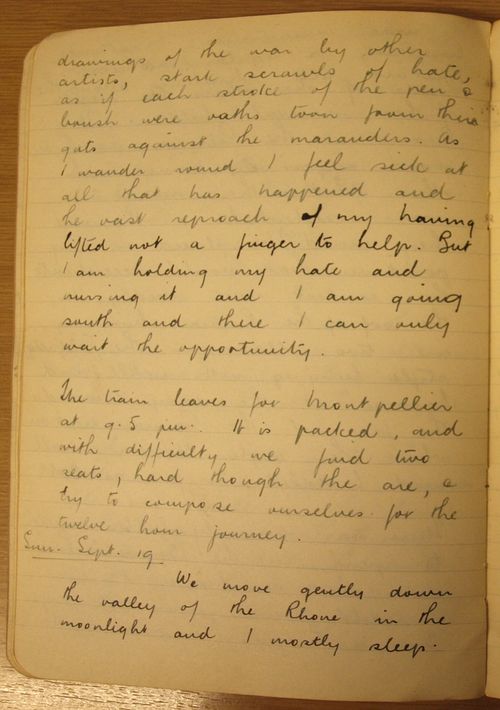 drawings of the war by other
artists, stark scrawls of hate,
as if each stroke of the pen &
brush were oaths torn from their
guts against the marauders. As
I wander round I feel sick at
all that has happened and
the vast reproach of my having
lifted not a finger to help. But
I am holding my hate and
nursing it and I am going
south and there I can only
wait the opportunity.
The train leaves for Montpellier
at 9.5 pm. It is packed, and
with difficulty we find two
seats, hard though the are, &
try to compose ourselves for the
twelve hour journey.
Sun. Sept. 19
We move gently down
the valley of the Rhone in the
moonlight and I mostly sleep.